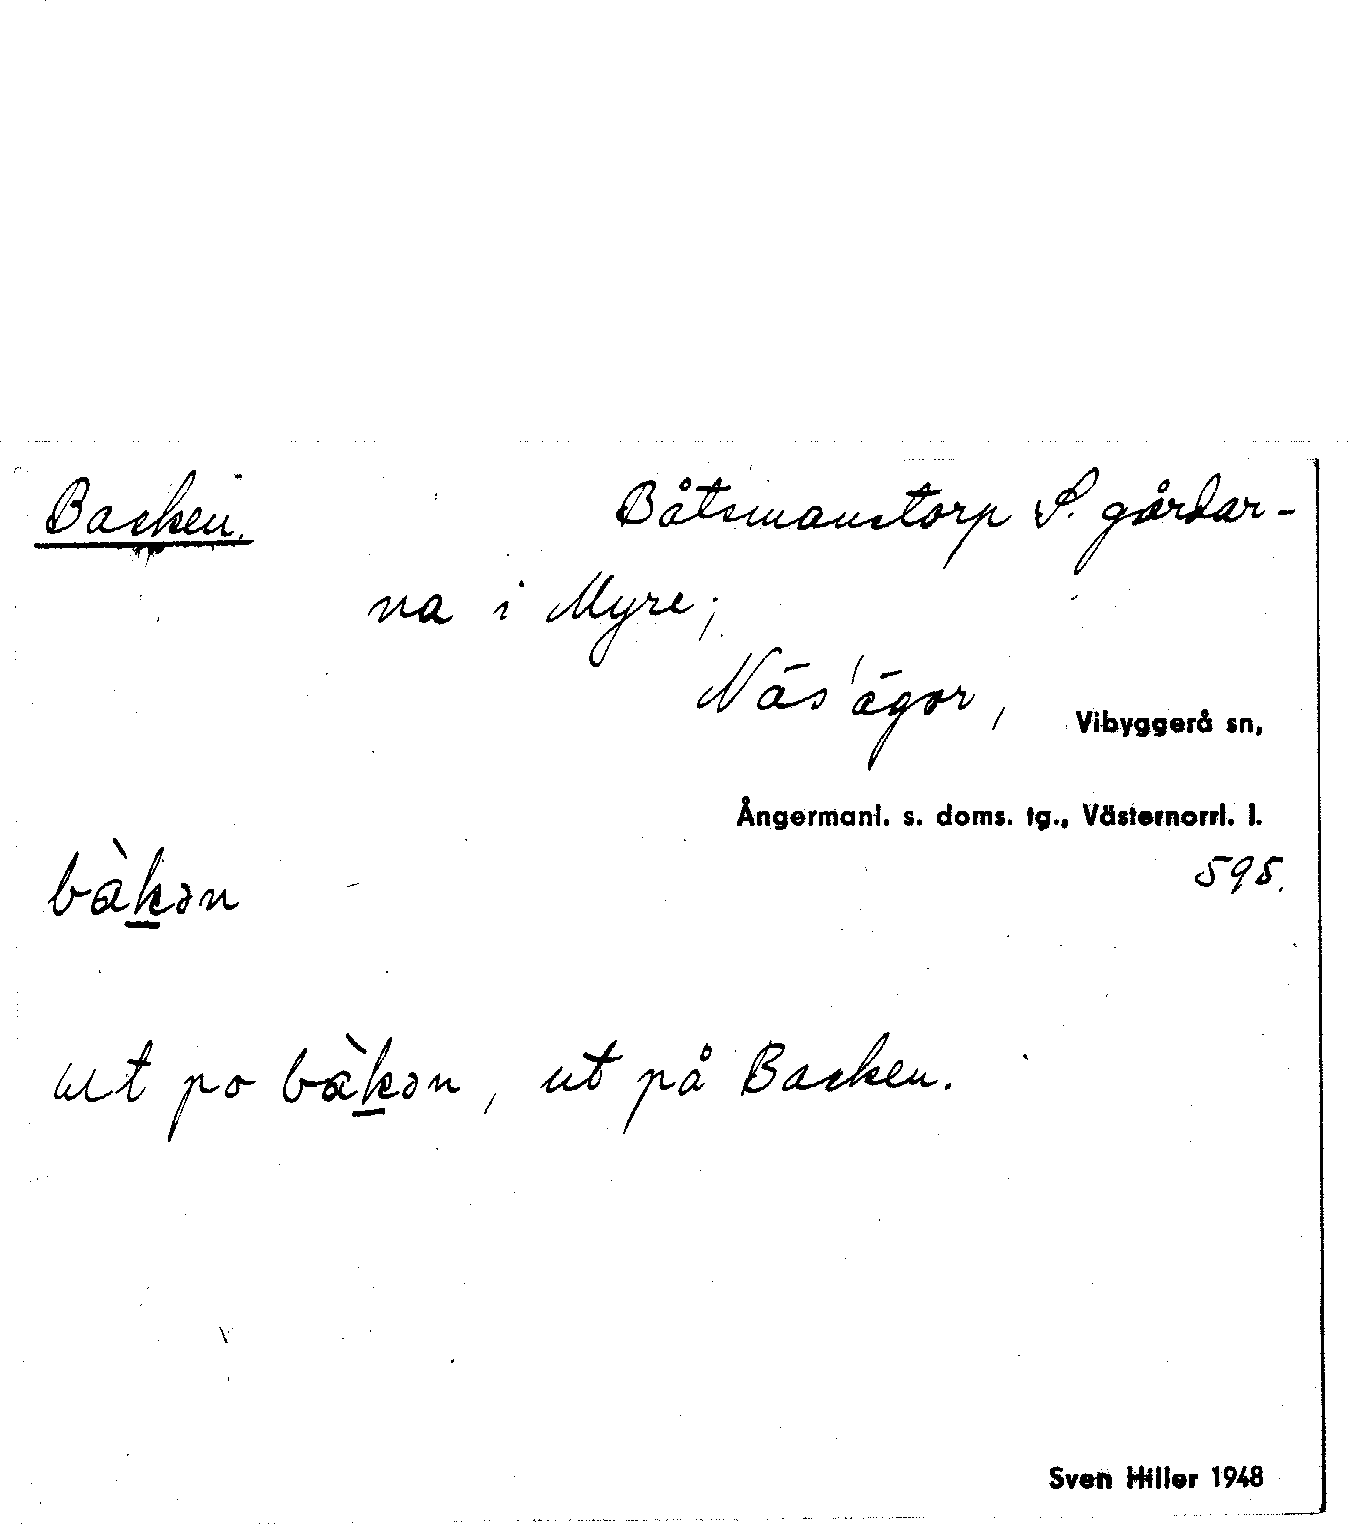 Backen. Båtsmanstorp S. gårdar-
na i Myre;
Näs' ägor, Vibyggerå sn,
Ångermanl. s. doms. tg., Västernorrl. l.
bàk̲ən 595.
ut po bàk̲ən, ut på Backen.
Sven Hiller 1948